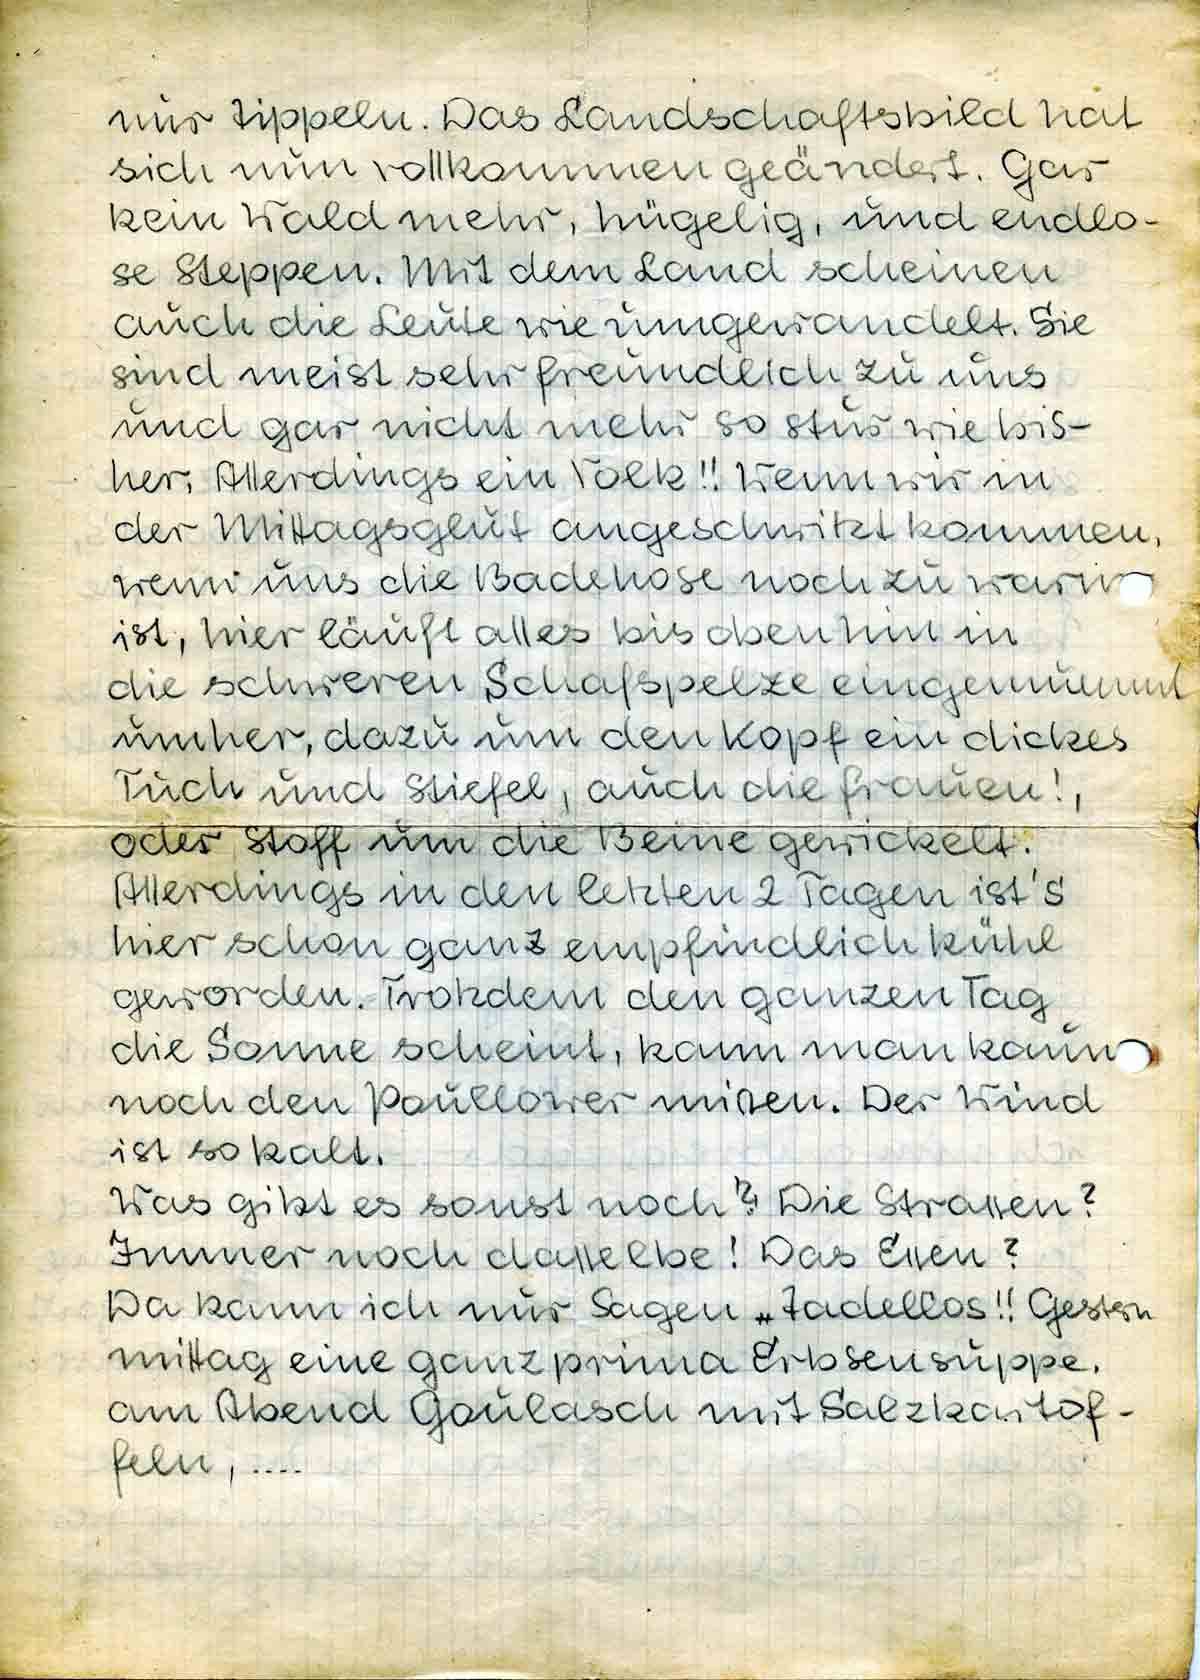 nur tippeln. Das Landschaftsbild hat
sich nun vollkommen geändert. Gar
kein Wald mehr, hügelig, und endlo-
se Steppen. Mit dem Land scheinen
auch die Leute wie umgewandelt. Sie
sind meist sehr freundlich zu uns
und gar nicht mehr so stur wie bis-
her. Allerdings ein Volk!! Wenn wir in
der Mittagsglut angeschwitzt kommen,
wenn uns die Badehose noch zu warm
ist, hier läuft alles bis oben hin in
die schweren Schafspelze eingemummt
umher, dazu um den Kopf ein dickes
Tuch und Stiefel, auch die Frauen!,
oder Stoff um die Beine gewickelt.
Allerdings in den letzten 2 Tagen ist's
hier schon ganz empfindlich kühl
geworden. Trotzdem den ganzen Tag
die Sonne scheint, kann man kaum
noch den Poullower missen. Der Wind
ist so kalt.
Was gibt es sonst noch? Die Strassen?
Immer noch dasselbe! Das Essen?
Da kann ich nur Sagen „Tadellos!! Gestern
mittag eine ganz prima Erbsensuppe.
am Abend Goulasch mit Salzkartof-
feln, ....